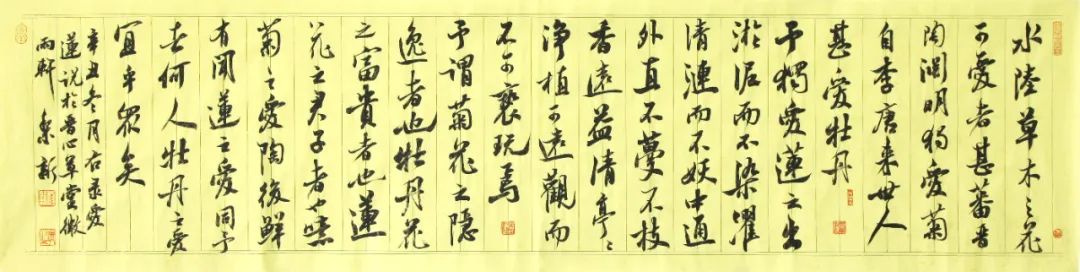 水陸草木之花
可愛者甚蕃晋
陶渊明独愛菊
自李唐来世人
甚愛牡丹
予獨愛蓮之出
淤泥而不染濯
清漣而不妖中通
外直不蔓不枝
香遠益清亭〻
淨植可遠觀而
不可褻玩焉
予謂菊花之隱
逸者也牡丹花
之富貴者也蓮
花之君子者也噫
菊之愛陶後鮮
有聞蓮之愛同予
者何人牡丹之愛
宜乎眾矣
辛丑冬月右录愛
蓮説於晋心草堂微
雨軒